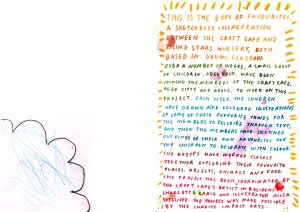 THIS IS THE BOOK OF FAVOURITES,
A SKETCHBOOK COLLABORATION
BETWEEN THE CRAFT CAFE AND
RISING STARS NURSERY, BOTH
BASED IN GOVAN, GLASGOW
OVER A NUMBER OF WEEKS, A SMALL GROUP
OF CHILDREN, AGED FOUR, HAVE BEEN
JOINING THE MEMBERS OF THE CRAFT CAFE,
AGED SIXTY AND ABOVE, TO WORK ON THIS
PROJECT. EACH WEEK, THE CHILDREN
HAVE DRAWN AND COLOURED ILLUSTRATIONS
OF SOME OF THEIR FAVOURITE THINGS FOR
THE MEMBERS TO DECORATE THROUGH TEXT,
AND THEN THE MEMBERS HAVE SKETCHED
OUTLINES OF THEIR OWN FAVOURITES FOR
THE CHILDREN TO DECORATE WITH COLOUR.
THE GROUPS HAVE WORKED CLOSELY
TOGETHER EXPLORING THEIR FAVOURITE
PLACES, OBJECTS, ANIMALS AND FOOD.
THE PROJECT HAS BEEN COORDINATED BY
THE CRAFT CAFE'S ARTIST IN RESIDENCE
CHARLOTTE CRAIG AND ILLUSTRATOR AILSA
SUTCLIFFE. THE PROJECT WAS MADE POSSIBLE
BY THE CHARITY IMPACT ARTS.